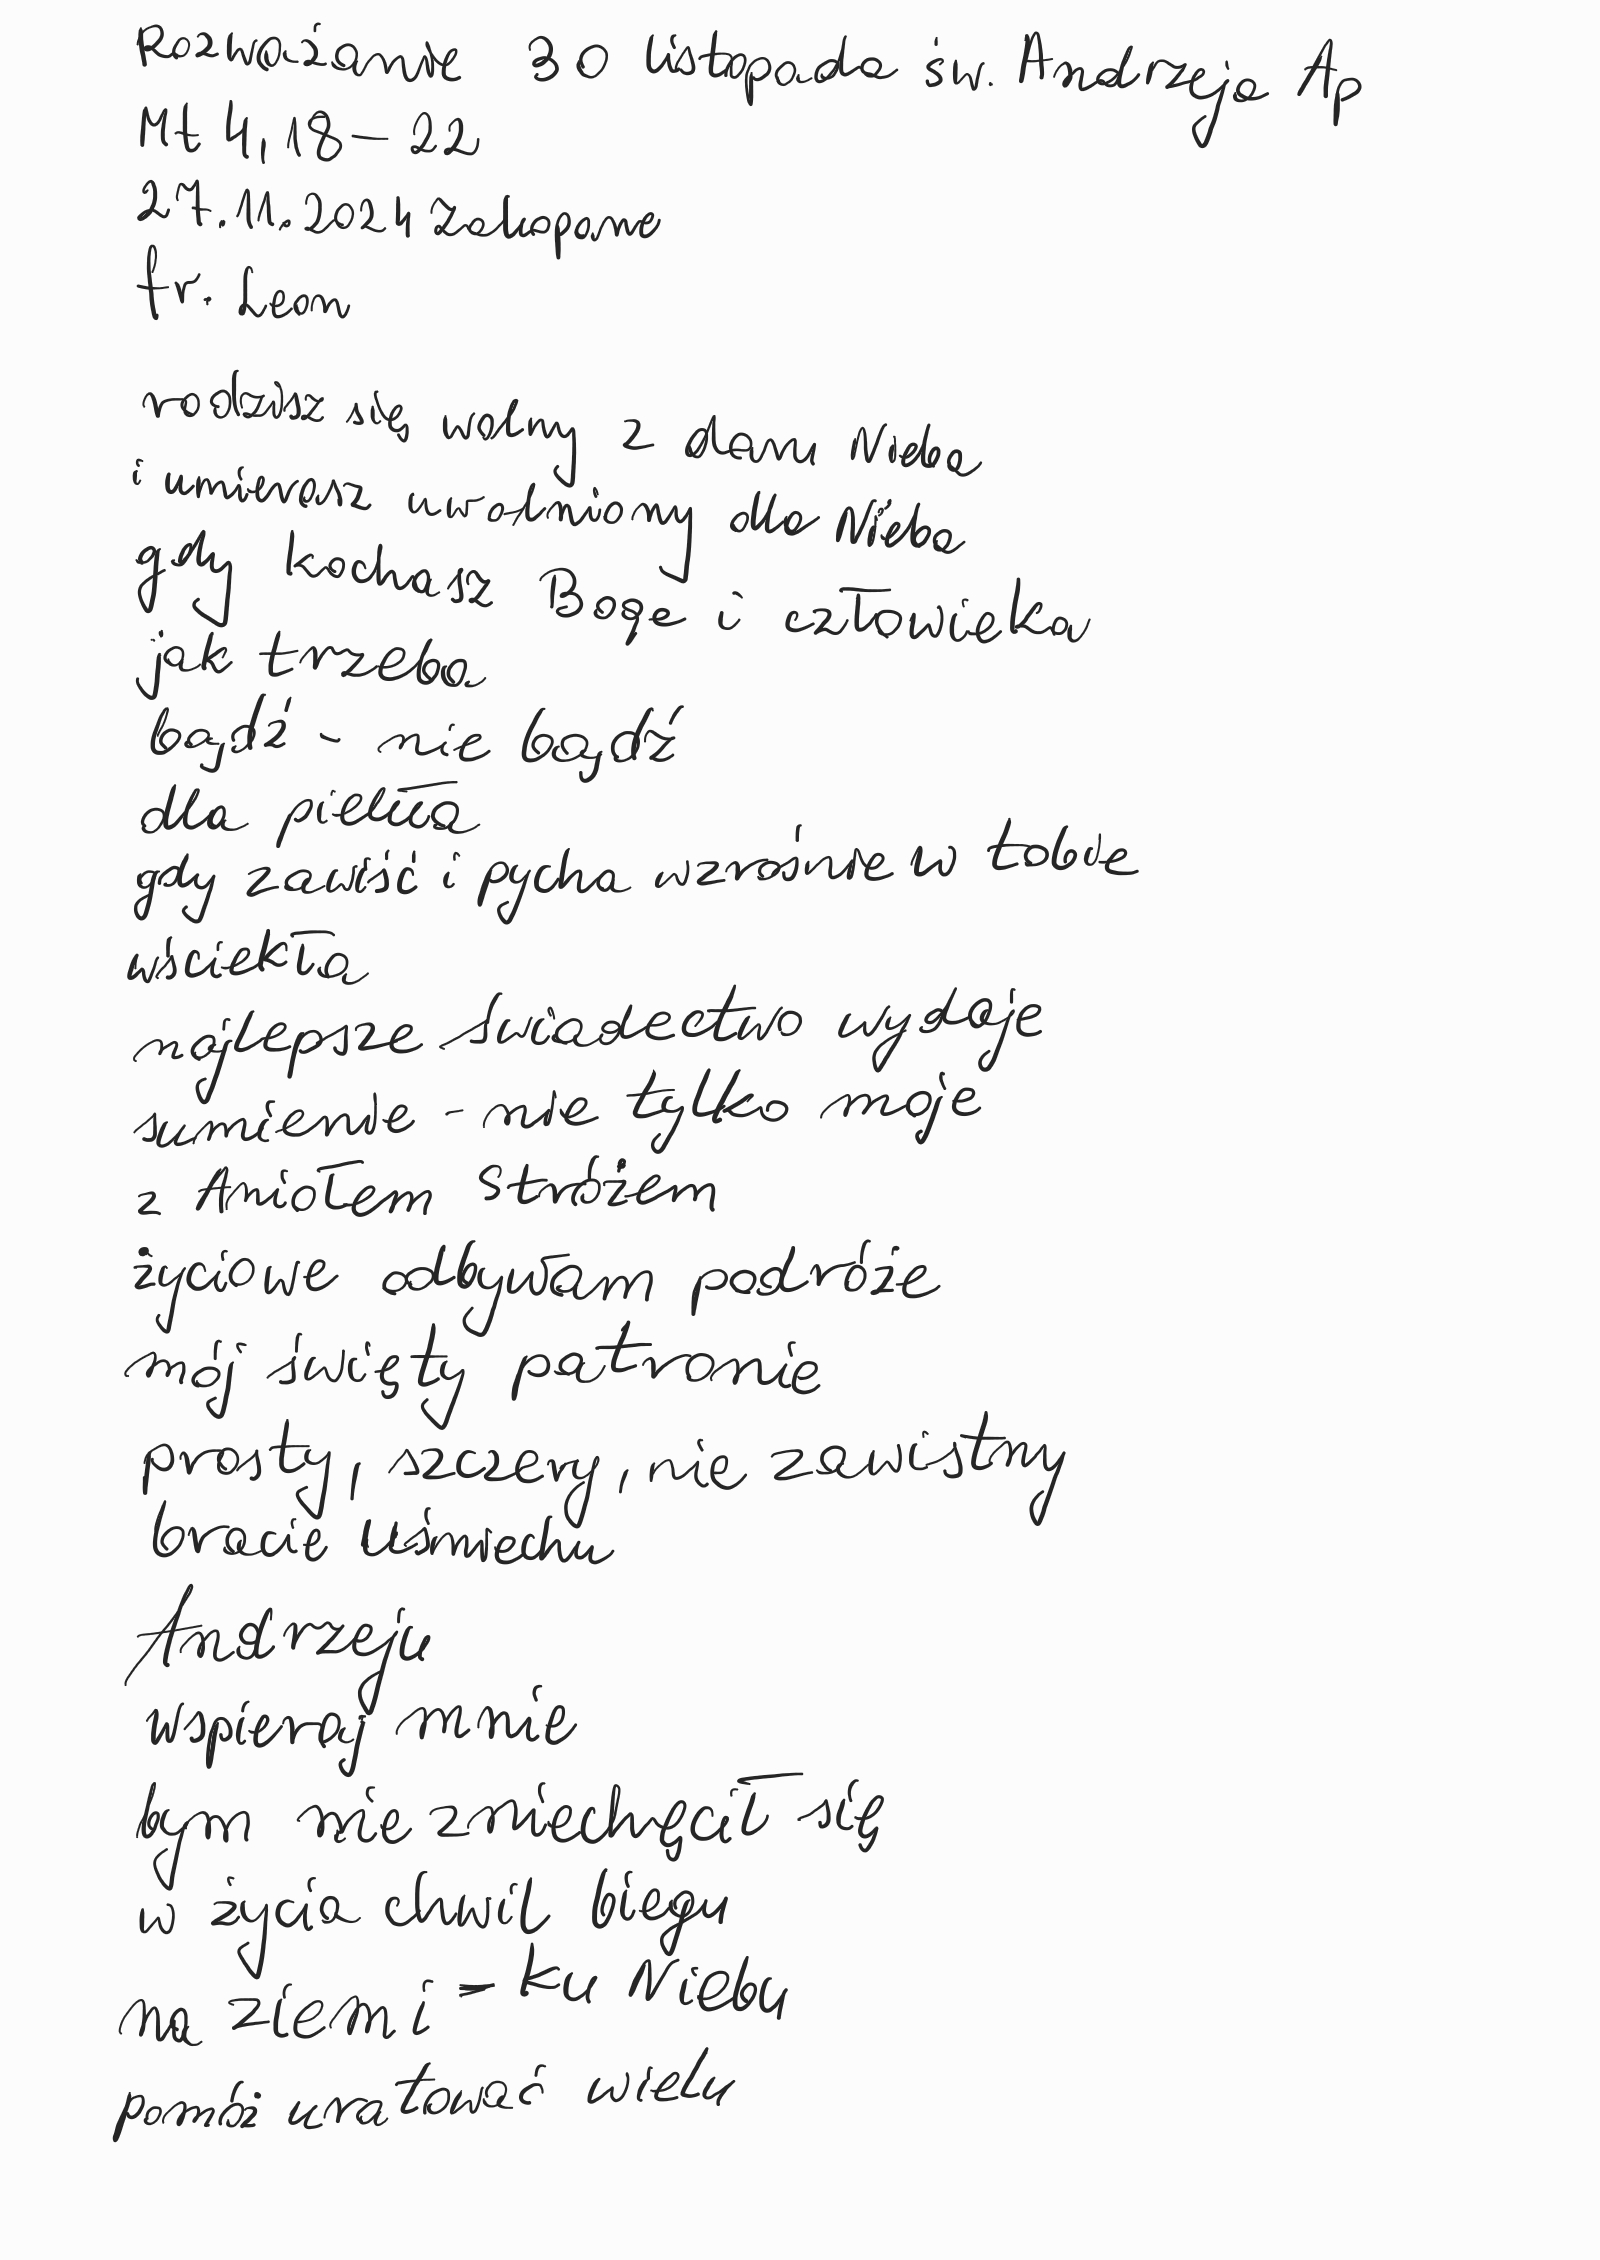 Rozważanie 30 listopada św. Andrzeja Ap
Mt 4, 18 – 22
27.11.2024 Zakopane
fr. Leon
rodzisz się wolny z daru Nieba
i umierasz uwolniony dla Nieba
gdy kochasz Boga i człowieka
jak trzeba
bądź - nie bądź
dla piekła
gdy zawiść i pycha wzrośnie w tobie
wściekła
najlepsze świadectwo wydaje
sumienie - nie tylko moje
z Aniołem Stróżem
życiowe odbywam podróże
mój święty patronie
prosty, szczery, nie zawistny
bracie Uśmiechu
Andrzeju
wspieraj mnie
bym nie zniechęcił się
w życia chwil biegu
na ziemi - ku Niebu
pomóż uratować wielu